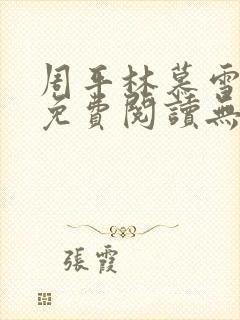 周平林慕雪
免費閱讀無
張霞